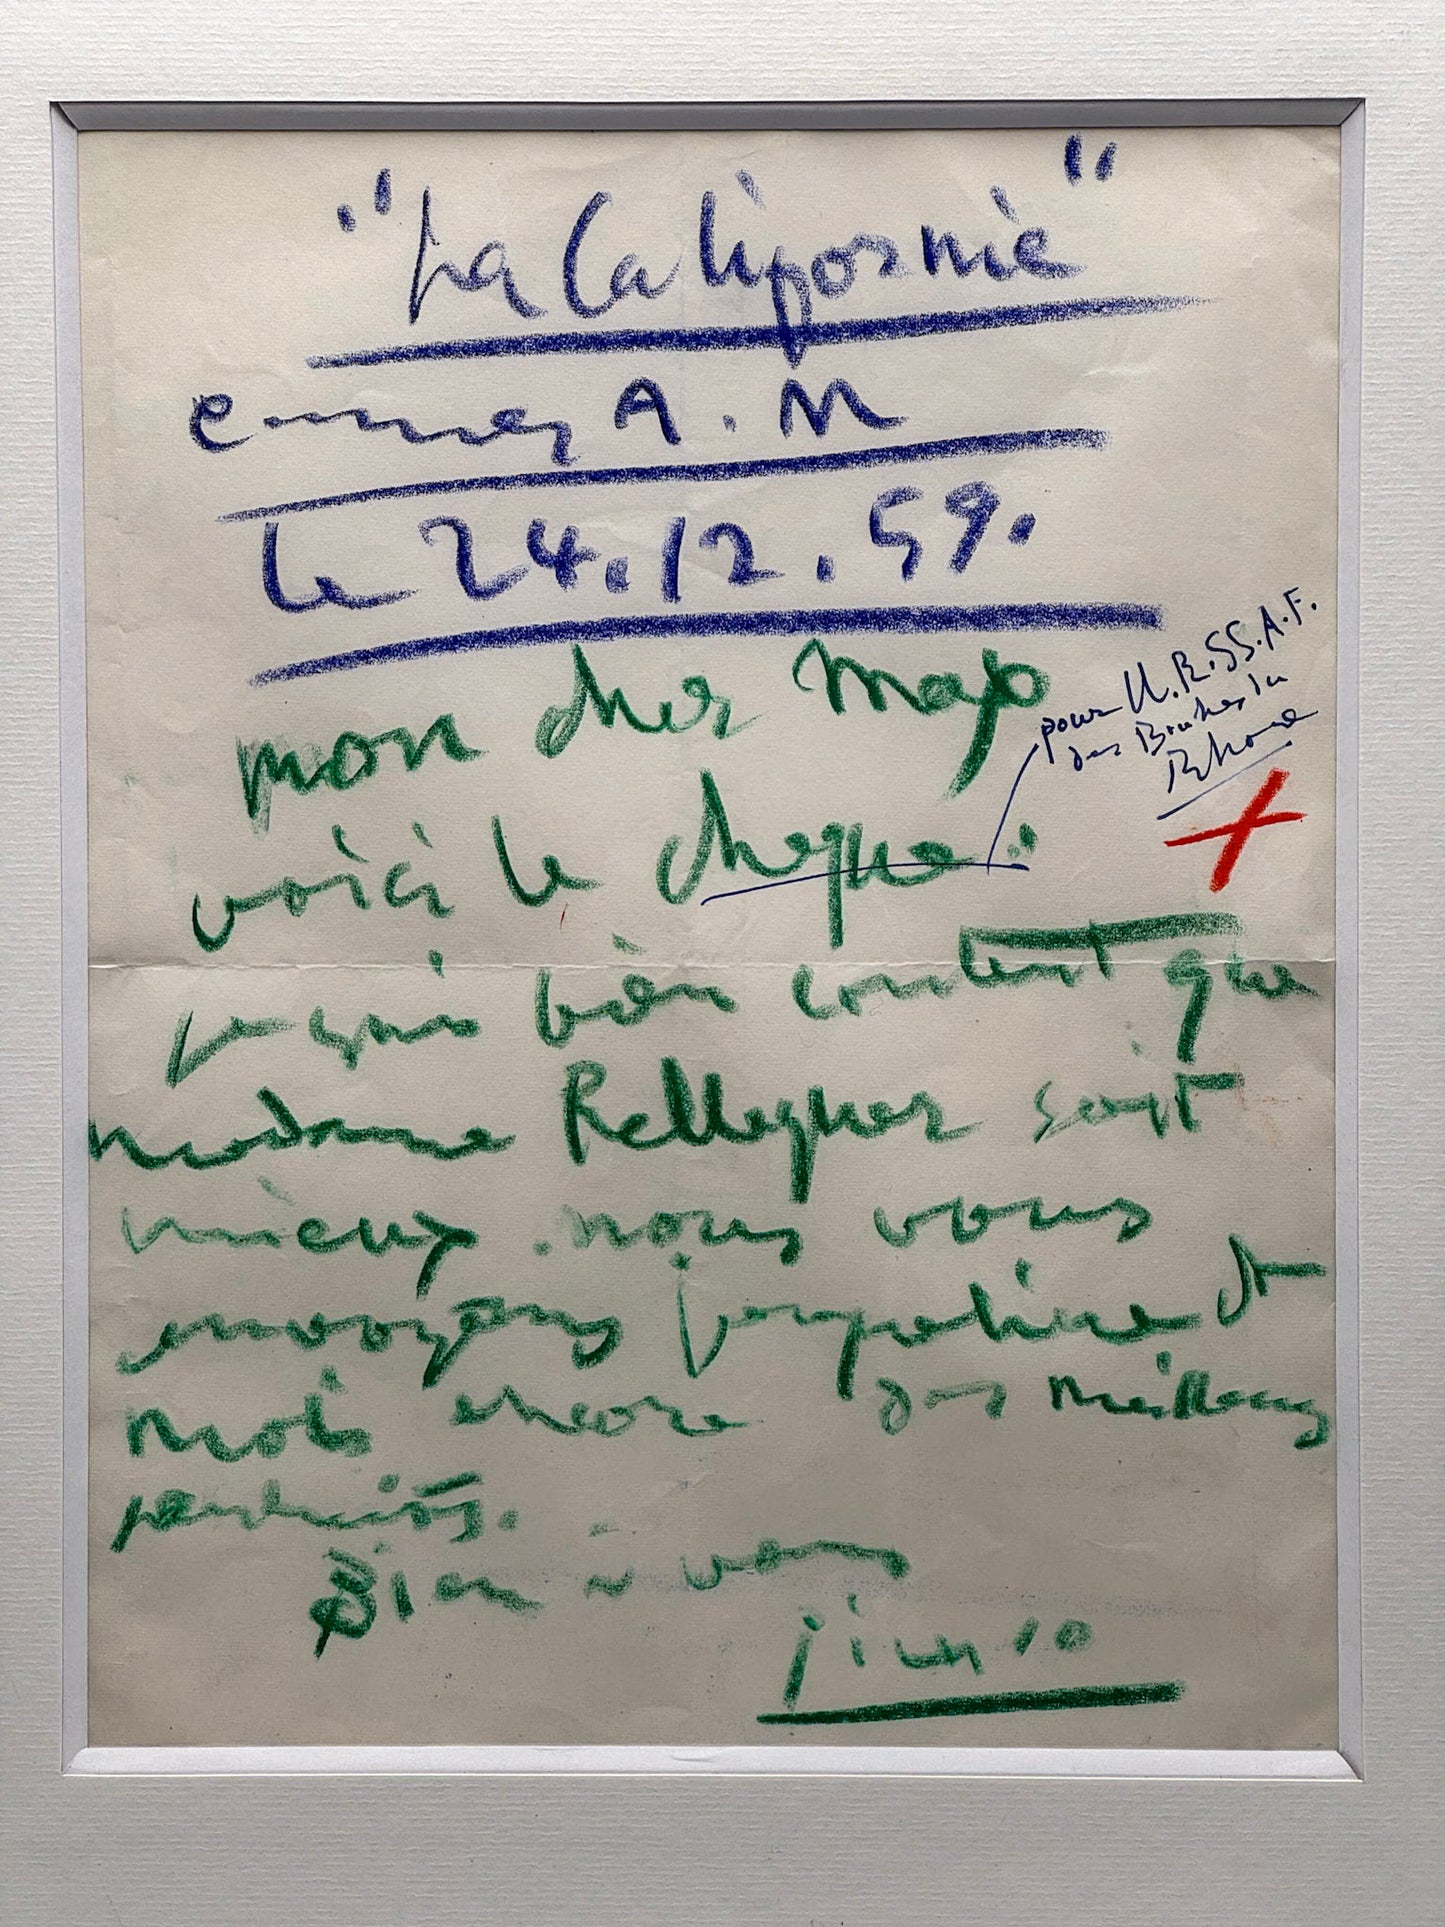 "La Californie"
Cannes A. M
le 24.12.59.
mon cher Max
pour U.R.SS.A.F.
des Bouches du
Rhone
voici le cheque
je suis bien content que
madame Pellequer soit
mieux. nous vous
envoyons Jacqueline et
moi encore des meilleurs
souhaits.
Bien à vous
Picasso